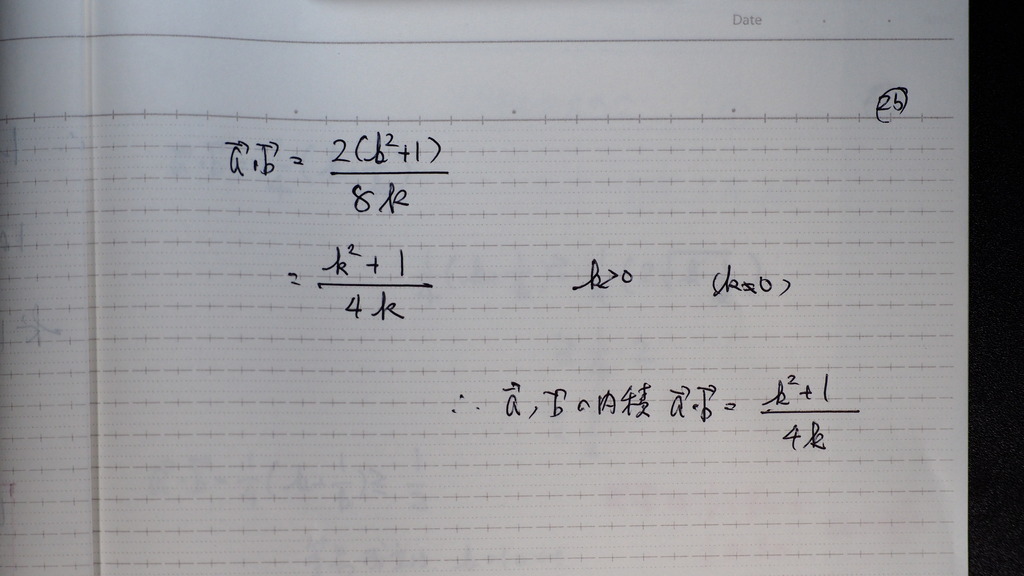 Date
25
a⃗·b⃗ = 2(k²+1) / 8k
= k²+1 / 4k k>0 (k≠0)
∴ a⃗, b⃗ の内積 a⃗·b⃗ = k²+1 / 4k